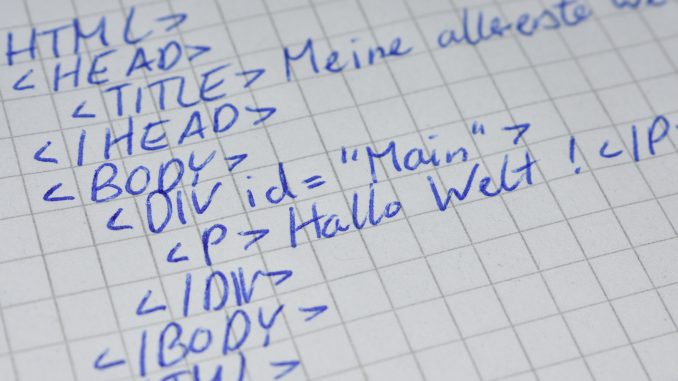 HTML>
<HEAD>
<TITLE> Meine allererste
</HEAD>
<BODY>
<DIV id="Main">
<P> Hallo Welt! </P
</DIV>
</BODY>